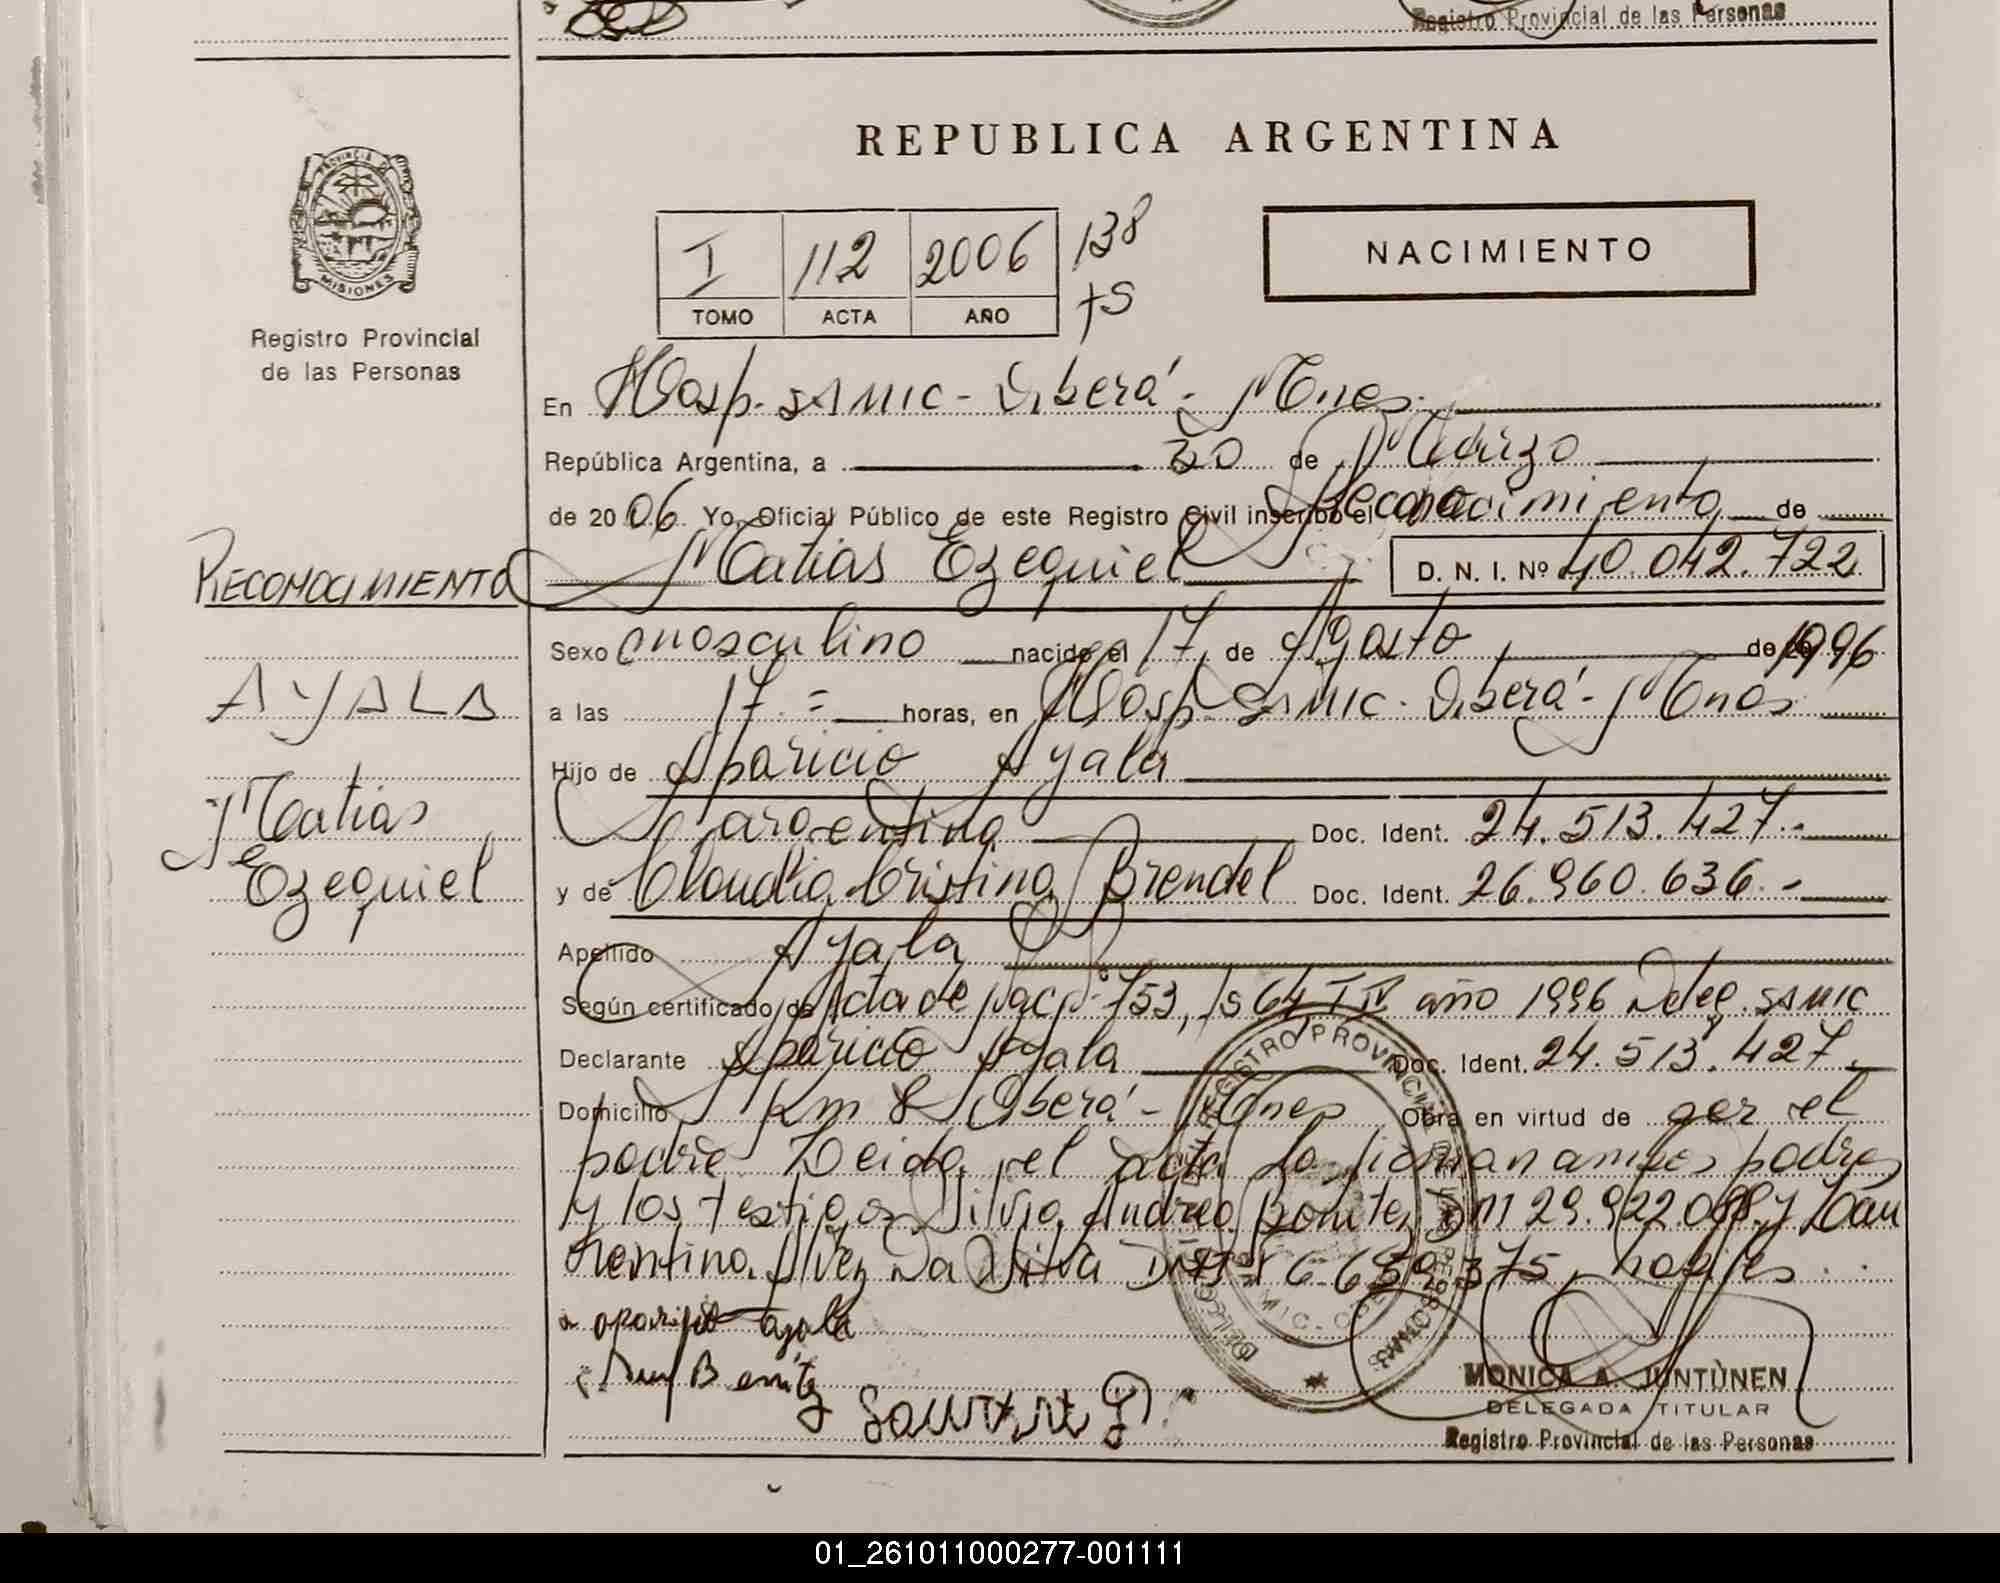 Registro Provincial de las Personas
REPUBLICA ARGENTINA
PROVINCIA DE
MISIONES
Registro Provincial
de las Personas
I 112 2006 138
TOMO ACTA AÑO
NACIMIENTO
En Hosp. SAMIC - Oberá - Mnes.
República Argentina, a 30 de Marzo
de 2006 Yo, Oficial Público de este Registro Civil inscribo el Reconocimiento de
RECONOCIMIENTO
Matias Ezequiel D. N. I. Nº 40.042.722
Sexo masculino nacido el 17 de Agosto de 1996
AYALA
a las 17.= horas, en Hosp. SAMIC - Oberá - Mnes
Hijo de Aparicio Ayala
Matias
argentino Doc. Ident. 24.513.427.-
Ezequiel
y de Claudia Cristina Brendel Doc. Ident. 26.960.636.-
Apellido Ayala
Según certificado de Acta de nac. 753, fs 64 T IV año 1996 Deleg. SAMIC
Declarante Aparicio Ayala Doc. Ident. 24.513.427.
Domicilio Km 8 Oberá - Mnes Obra en virtud de ser el
padre. Leida el acta la firman ambos padres
y los testigos Silvia Andrea Benitez DNI 29.922.088 y
Alvez Da Silva 6.659.375, hábiles..
aparicio ayala
Benitez
MONICA A. JUNTÙNEN
DELEGADA TITULAR
Registro Provincial de las Personas
01_261011000277-001111